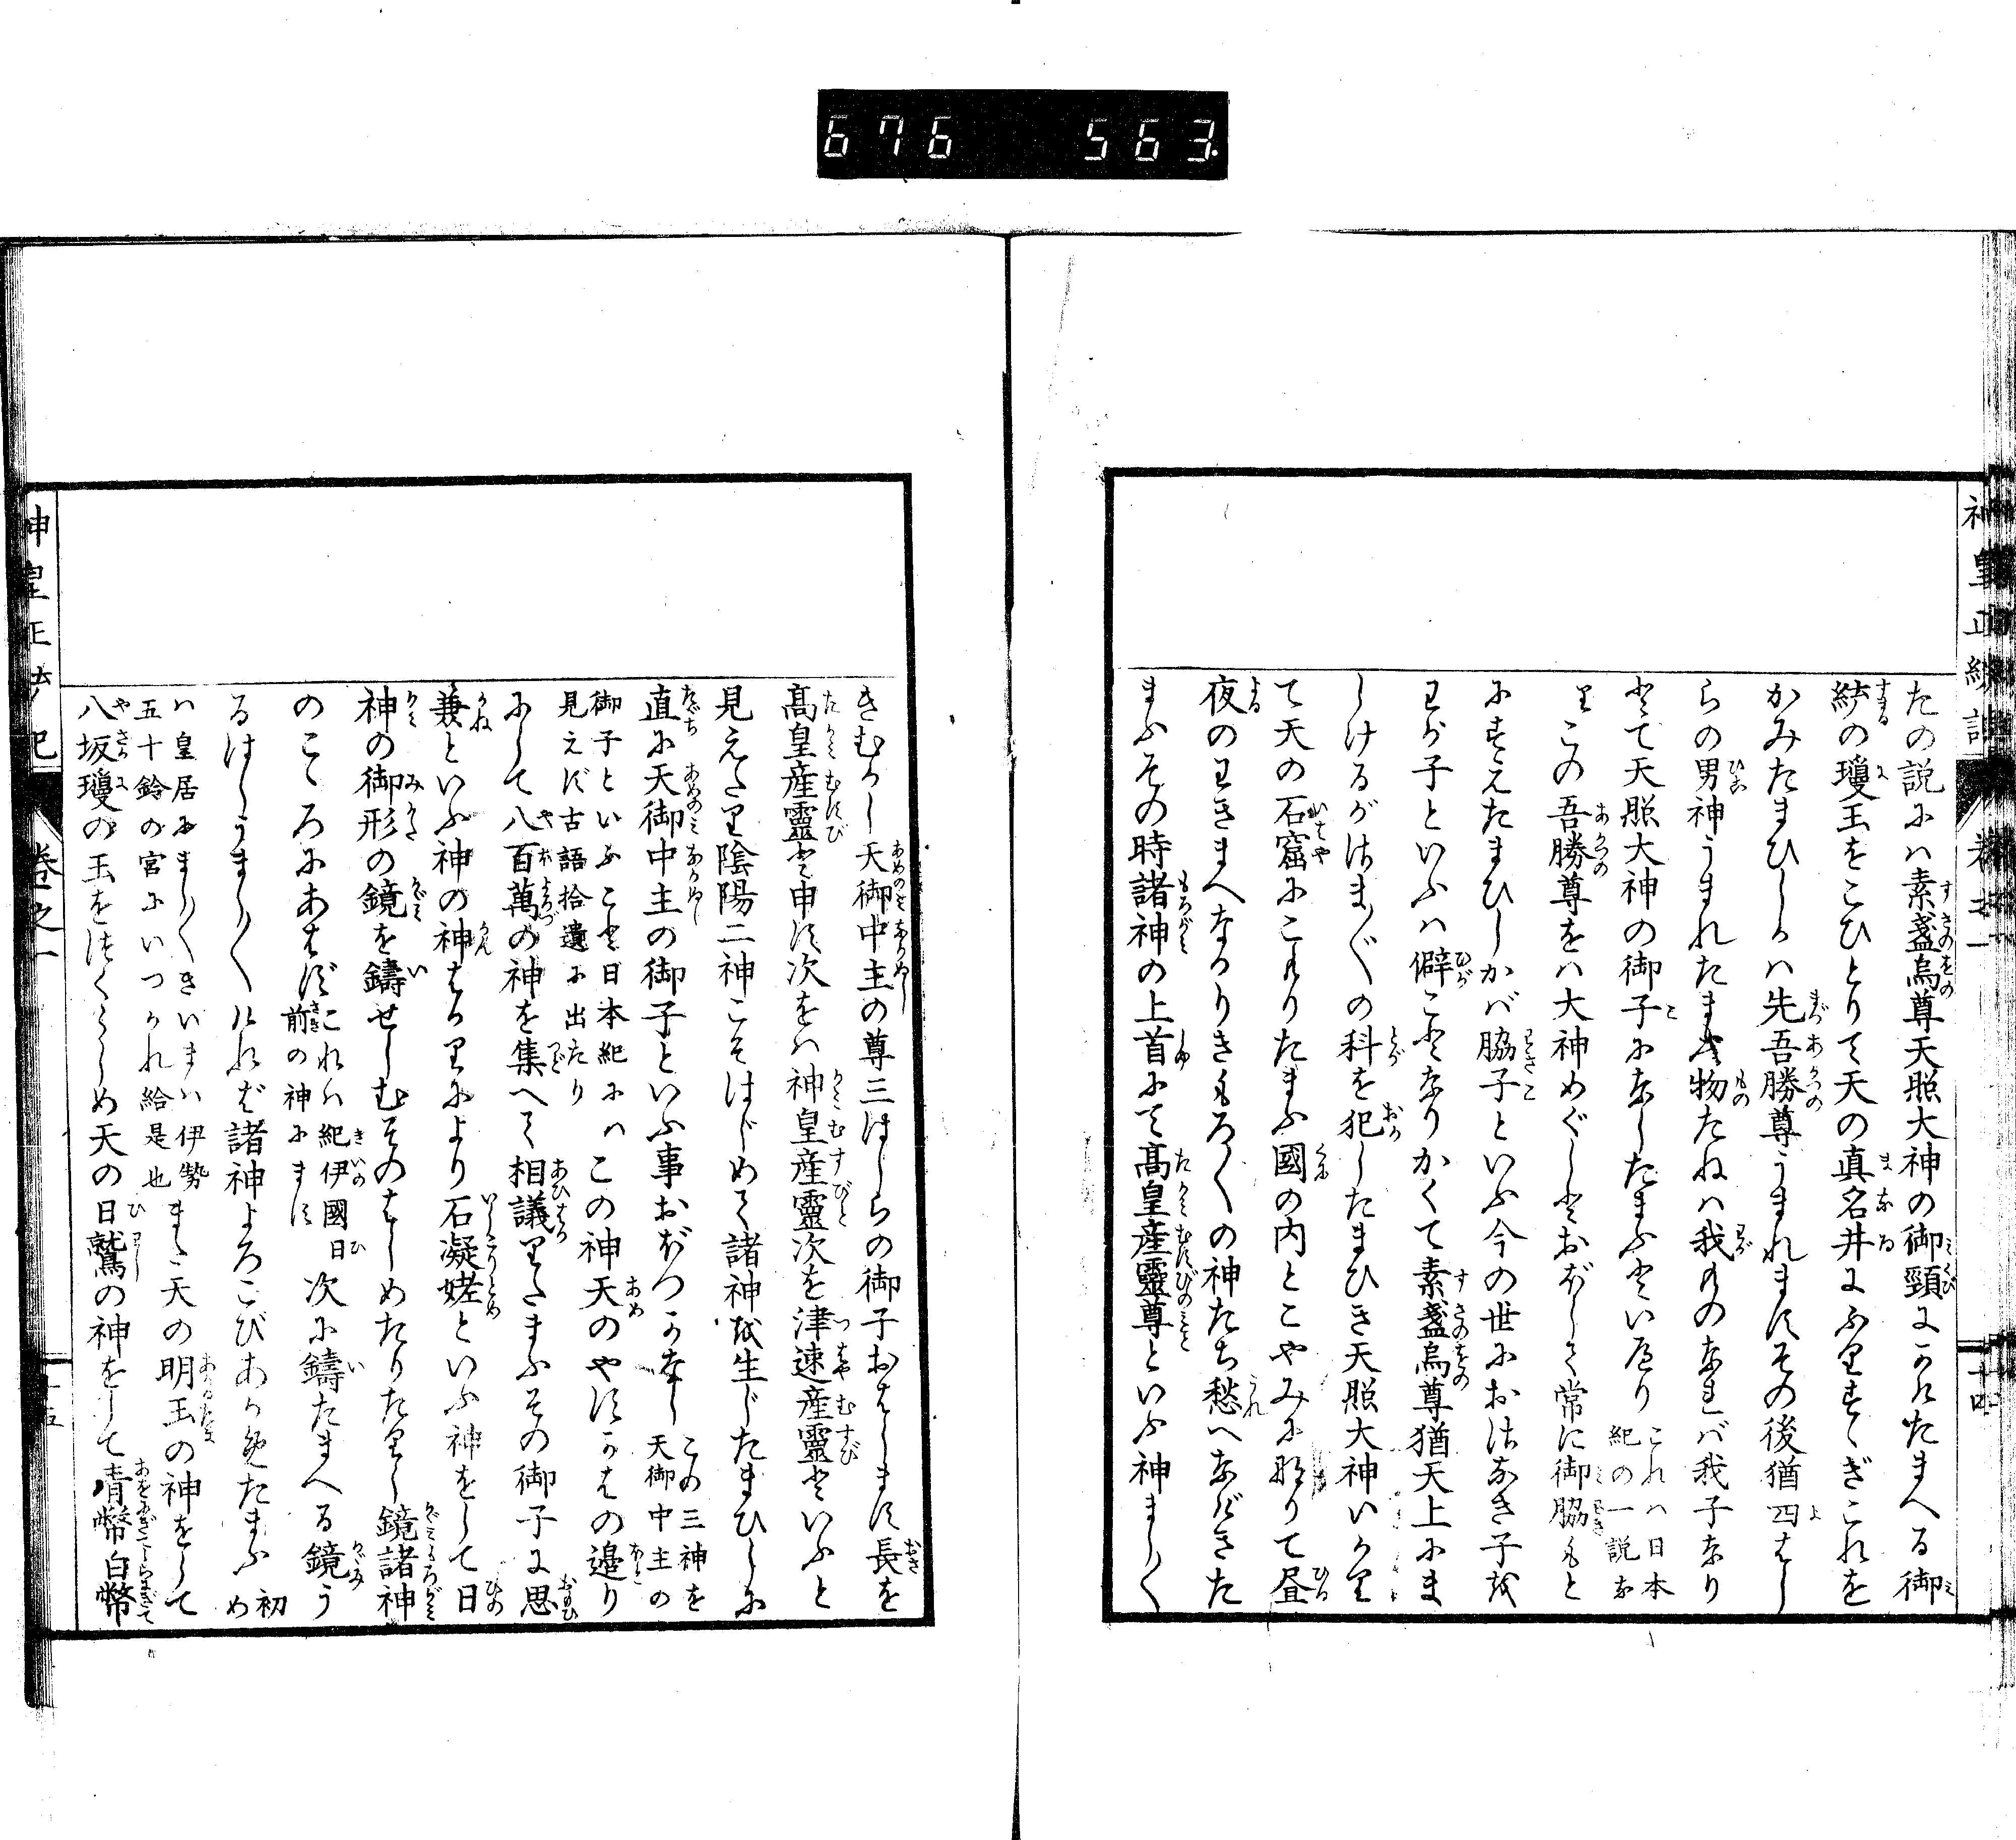 676 563
神皇正統記 卷之一 十四
たの説には素盞烏尊天照大神の御頸にかけたまへる御
統の瓊玉をこひとりて天の真名井にふりすゝぎこれを
かみたまひしかは先吾勝尊うまれますその後猶四はし
らの男神うまれたまふ物たねは我ものなれば我子なり
とて天照大神の御子になしたまふといへり これは日本
紀の一説な
りこの吾勝尊をは大神めぐしとおぼして常に御脇もと
にすえたまひしかバ脇子といふ今の世におさなき子を
わか子といふは僻ことなりかくて素盞烏尊猶天上にま
しけるがさま〴〵の科を犯したまひき天照大神いかり
て天の石窟にこもりたまふ國の内とこやみになりて昼
夜のわきまへなかりきもろ〳〵の神たち愁へなげきた
まふその時諸神の上首にて髙皇産靈尊といふ神まし〳〵
きむかし天御中主の尊三はしらの御子おはします長を
髙皇産靈と申す次をは神皇産靈次を津速産靈といふと
見えたり陰陽二神こそはじめて諸神を生じたまひしに
直に天御中主の御子といふ事おぼつかなし この三神を
天御中主の
御子といふこと日本紀には
見えず古語拾遺に出たり この神天のやすかはの邉り
にして八百萬の神を集へて相議りたまふその御子に思
兼といふ神の神はかりにより石凝姥といふ神をして日
神の御形の鏡を鑄せしむそのはしめたりたりし鏡諸神
のこゝろにあはず これは紀伊國日
前の神にます 次に鑄たまへる鏡う
るはしうまし〳〵けれど諸神よろこびあかめたまふ 初
め
は皇居にまし〳〵きいまは伊勢
五十鈴の宮にいつかれ給是也 また天の明玉の神をして
八坂瓊の玉をつくらしめ天の日鷲の神をして青幣白幣
神皇正統記 卷之一 十五